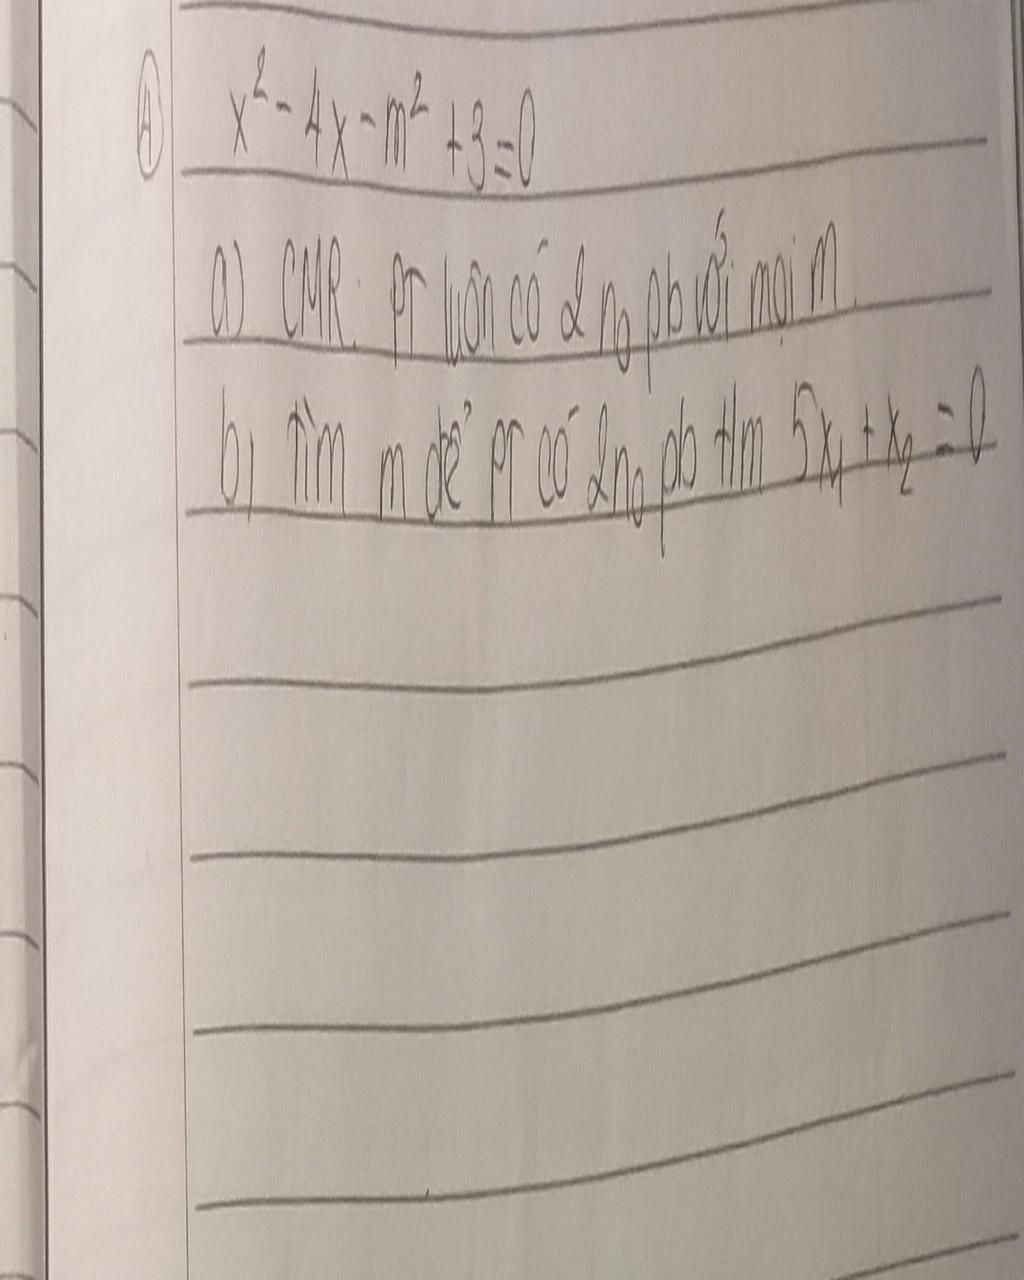 ④ x² - 4x - m² + 3 = 0
a) CMR: pT luôn có 2 n₀ pb với mọi m
b, Tìm m để pT có 2 n₀ pb t/m 5x₁ + x₂ = 0